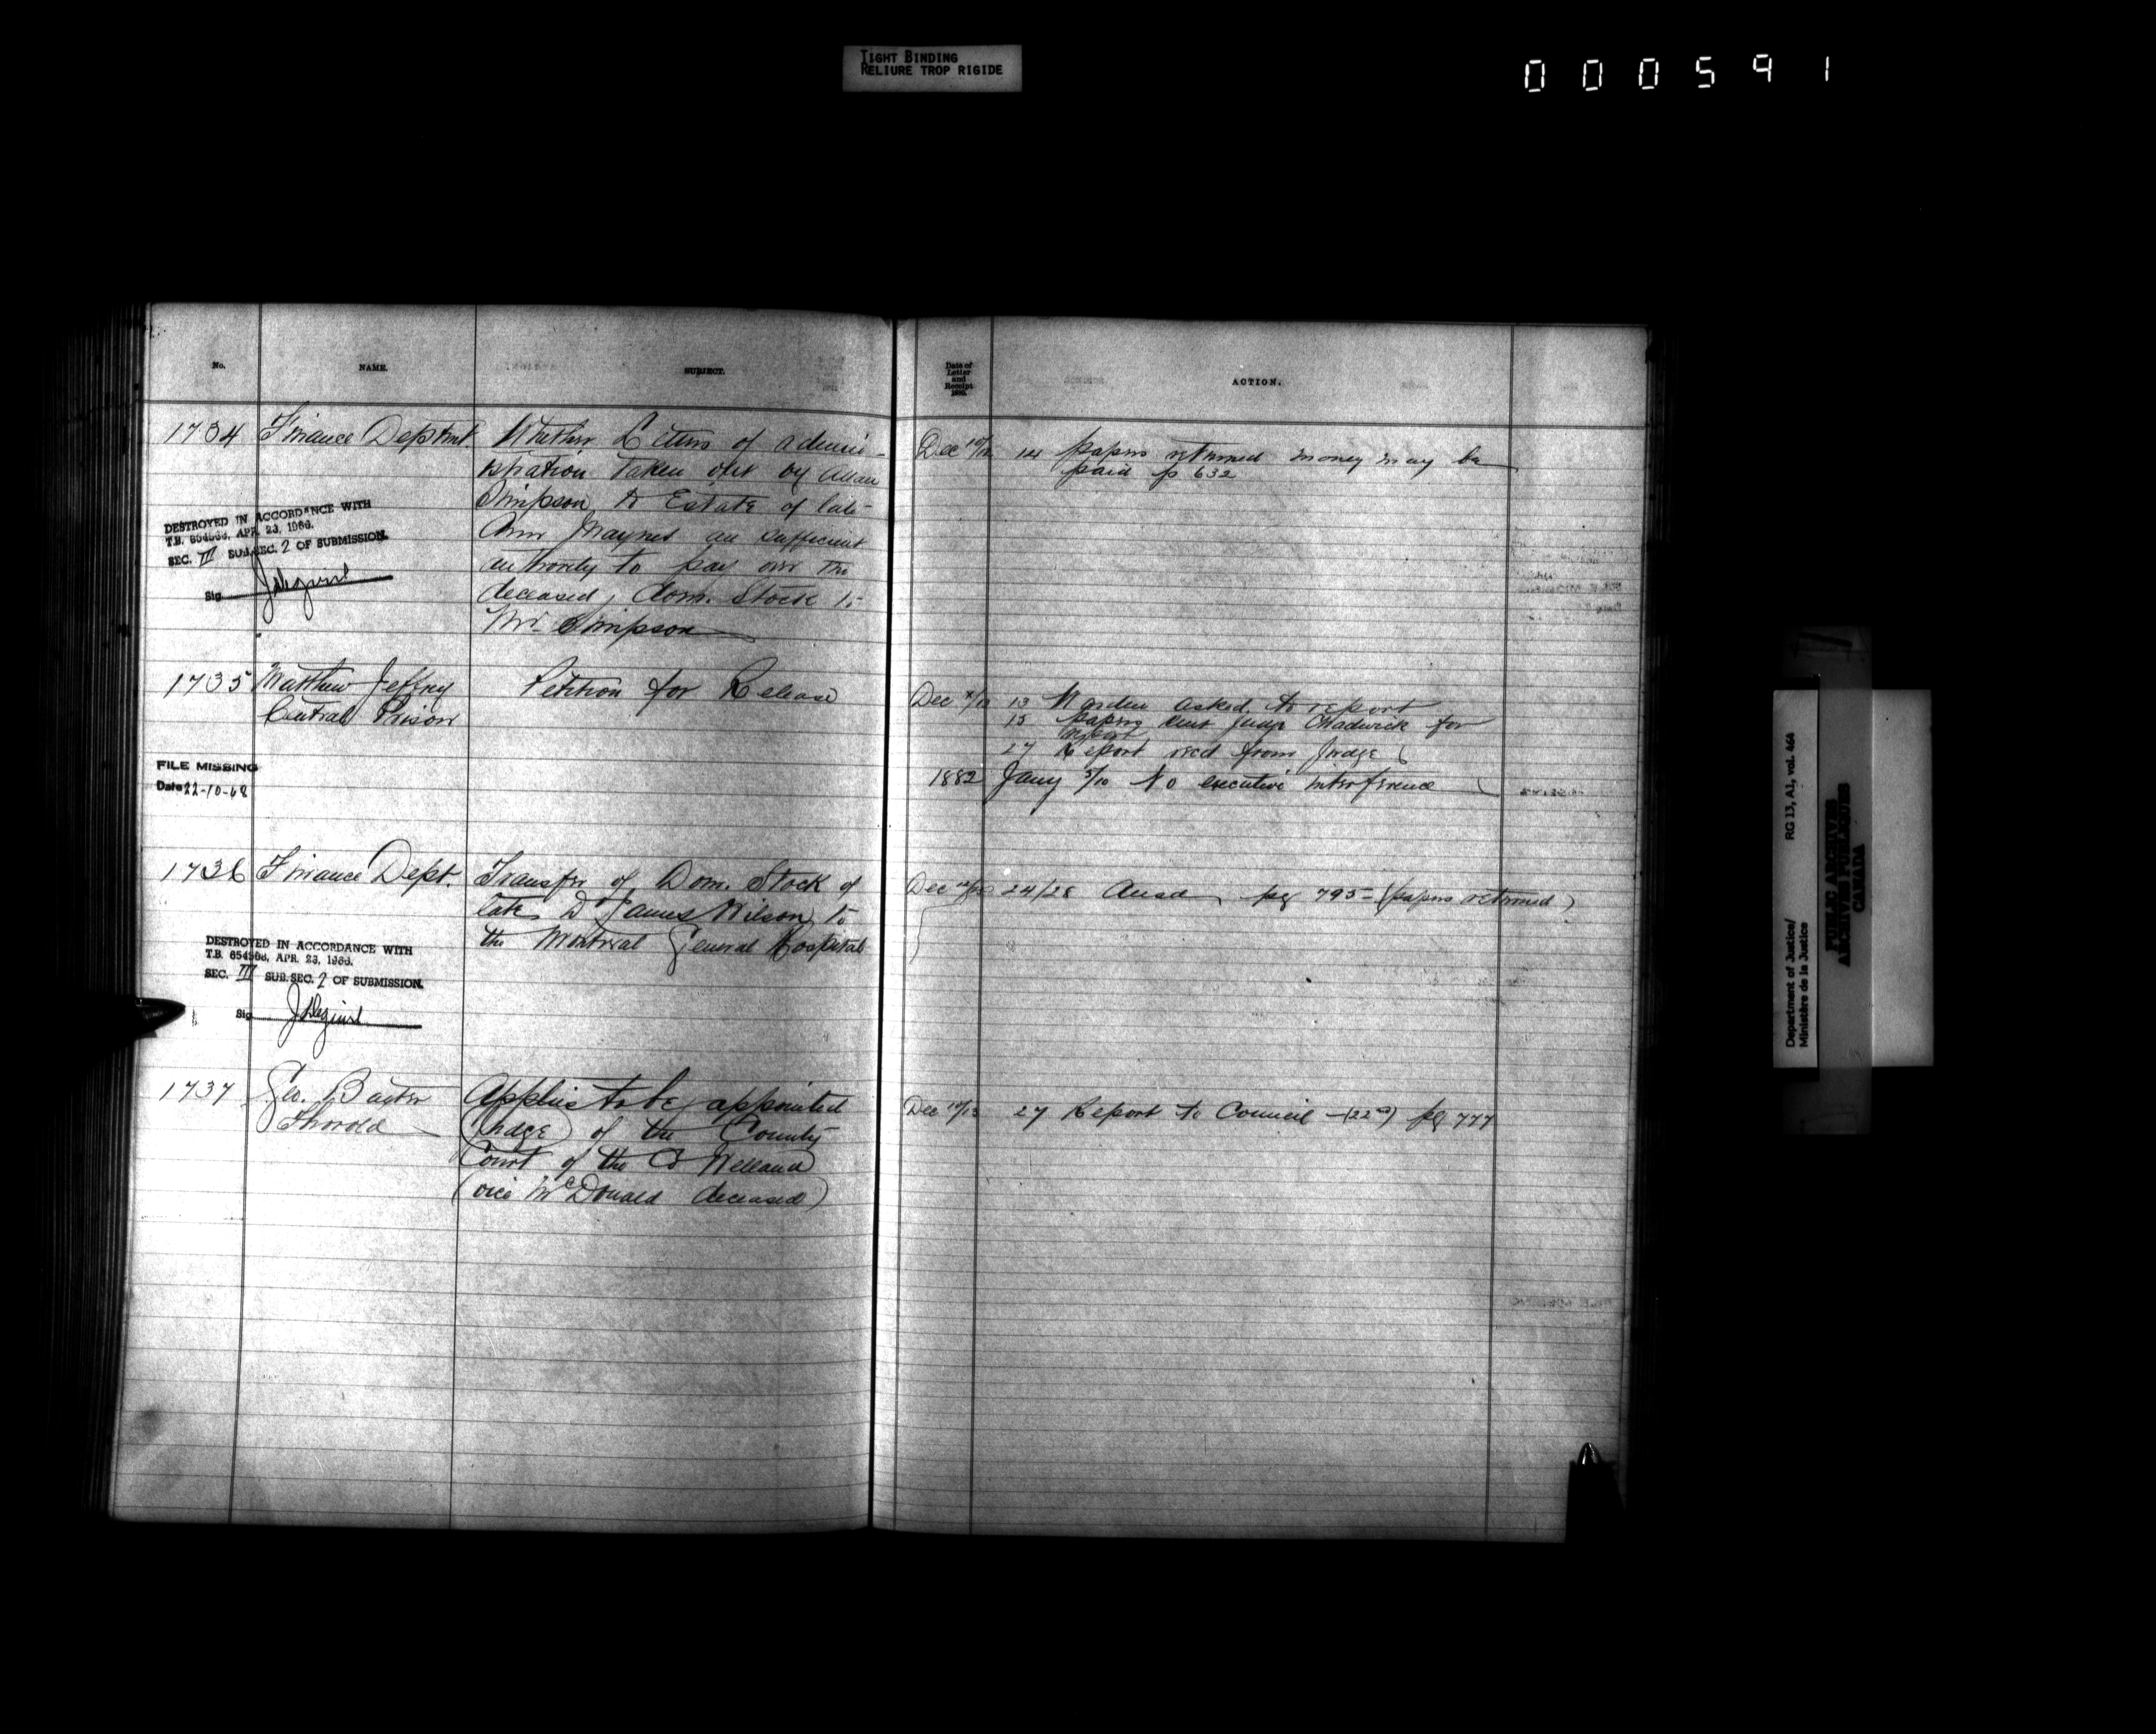 TIGHT BINDING
RELIURE TROP RIGIDE
000591
No.
NAME.
SUBJECT.
Date of
Letter
and
Receipt
ACTION.
1734 Finance Deptmt. Whether Letters of admini-
stration taken out by Allan
Simpson to Estate of late
Ann Maynes are sufficient
authority to pay over the
deceased, Dom. Stock to
Mr. Simpson
Dec 10/12 14 papers returned money may be
paid p 632
DESTROYED IN ACCORDANCE WITH
T.B. 654568, APR. 23, 1966.
SEC. III SUB.SEC. 2 OF SUBMISSION.
Sig
1735 Matthew Jeffrey Petition for Release
Central Prison
Dec 13 Warden asked to report
15 papers sent Judge Chadwick for
report
27 Report recd from Judge
1882 Jany 3/10 No executive interference
FILE MISSING
Date 22-10-68
1736 Finance Dept. Transfer of Dom. Stock of
late Dr James Wilson to
the Montreal General Hospital
Dec 24/28 Ansd pg 795 (papers returned)
DESTROYED IN ACCORDANCE WITH
T.B. 654568, APR. 23, 1966.
SEC. III SUB.SEC. 2 OF SUBMISSION.
Sig
1737 Geo. Baxter Applies to be appointed
Thorold Judge of the County
Court of the Co Welland
(vice McDonald deceased)
Dec 10/13 27 Report to Council (22nd) pg 777
Department of Justice/
Ministère de la Justice
RG 13, A1, vol. 464
PUBLIC ARCHIVES
ARCHIVES PUBLIQUES
CANADA